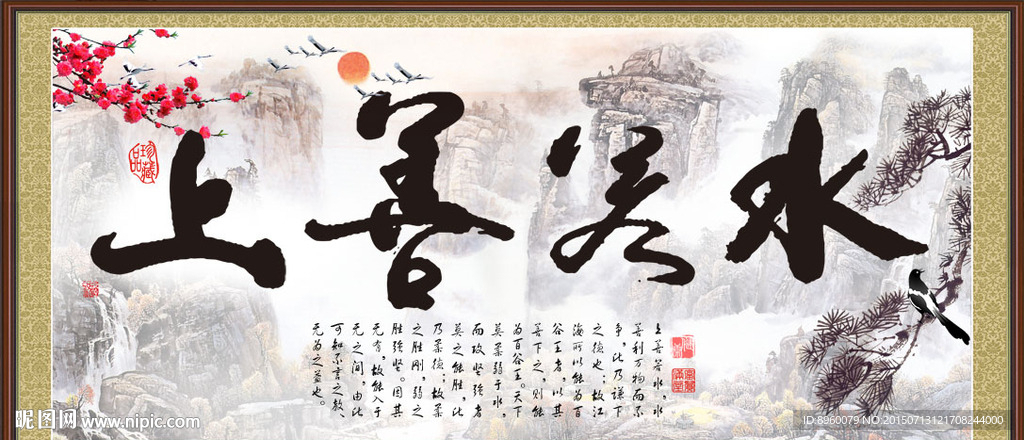 上善若水
珍藏品
上善若水。水
善利万物而不
争，此乃谦下
之德也；故江
海所以能为百
谷王者，以其
善下之，则能
为百谷王。天下
莫柔弱于水，
而攻坚强者
莫之能胜，此
乃柔德；故柔
之胜刚，弱之
胜强坚。因其
无有，故能入于
无之间，由此
可知不言之教、
无为之益也。
昵图网 www.nipic.com
ID:8960079 NO:20150713121708244000